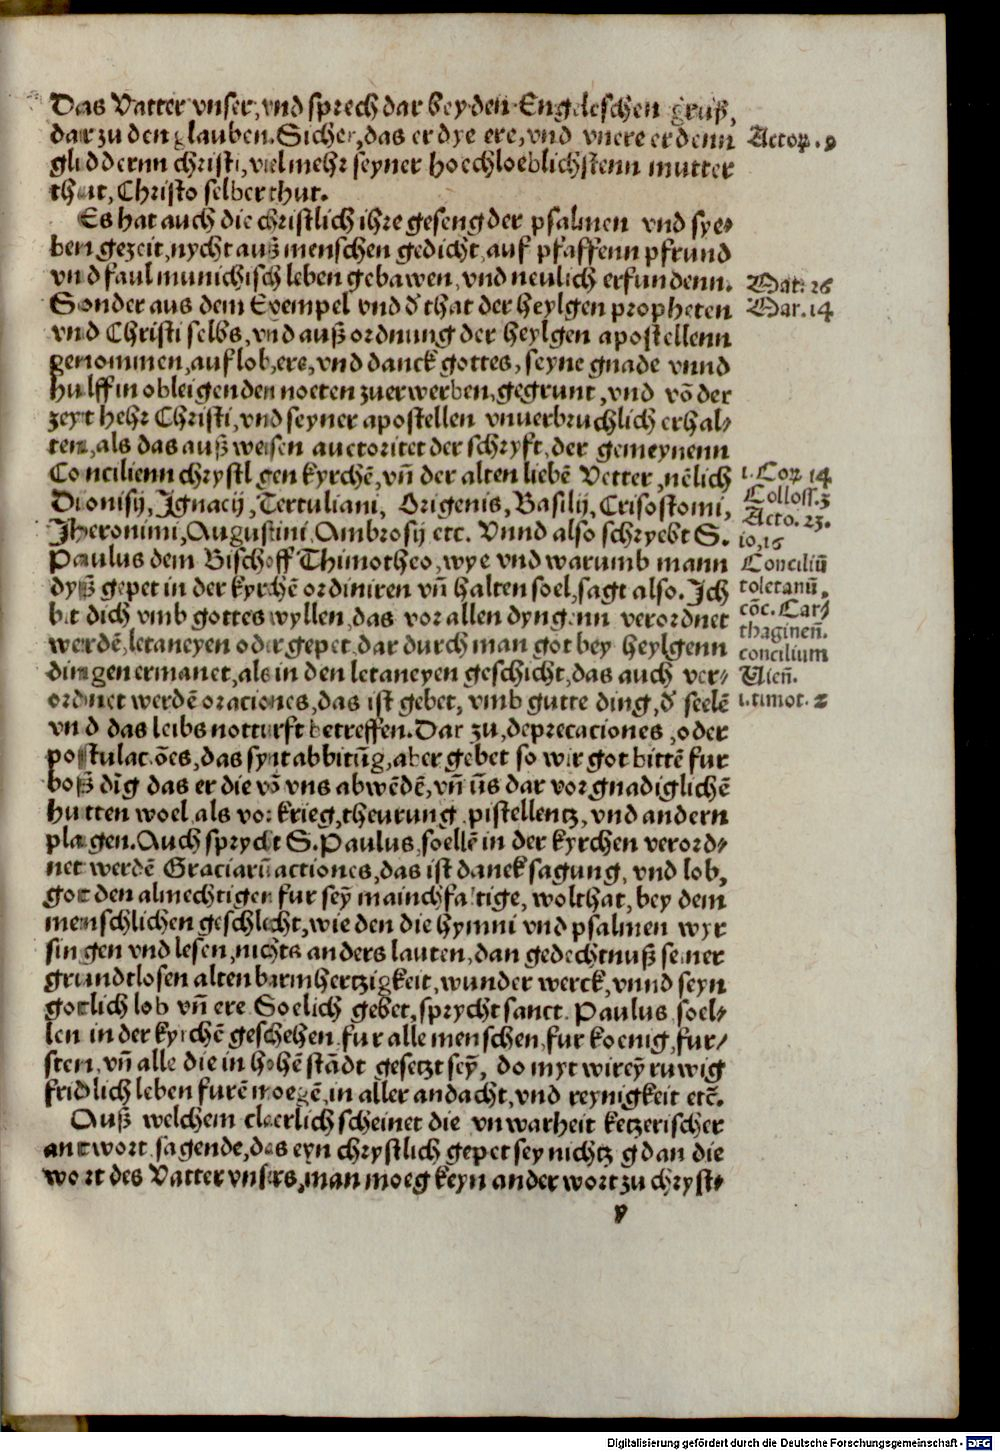 Das Vatter vnser, vnd sprech dar bey den Engeleschen gruß,
dar zu den glauben. Sicher, das er dye ere, vnd vnere er denn
gliddernn christi, viel mehr seyner hoechloeblichstenn mutter
thut, Christo selber thut.
Es hat auch die christlich ihre geseng der psalmen vnd sye-
ben gezeit, nycht auß menschen gedicht, auf pfaffenn pfrund
vnd faul munichisch leben gebawen, vnd neulich erfundenn.
Sonder aus dem Exempel vnd d' that der heylgen propheten
vnd Christi selbs, vnd auß ordnung der heylgen apostellenn
genommen, auf lob, ere, vnd danck gottes, seyne gnade vnnd
hulff in obleigenden noeten zuerwerben, gegrunt, vnd võ der
zeyt hehr Christi, vnd seyner apostellen vnuerbruchlich erhal-
ten, als das auß weisen auctoritet der schryft, der gemeynenn
Concilienn chrystlgen kyrchē, vñ der alten liebē Vetter, nēlich
Dionisij, Ignacij, Tertuliani, Origenis, Basilij, Crisostomi,
Jheronimi, Augustini, Ambrosij etc. Vnnd also schryebt S.
Paulus dem Bischoff Thimotheo, wye vnd warumb mann
dyß gepet in der kyrchē ordiniren vñ halten soel, sagt also. Ich
bit dich vmb gottes wyllen, das vor allen dyngenn verordnet
werdē, letaneyen oder gepet, dar durch man got bey heylgenn
dingen ermanet, als in den letaneyen geschicht, das auch ver-
ordnet werdē oraciones, das ist gebet, vmb gutte ding, d' seelē
vnd das leibs notturft betreffen. Dar zu, deprecaciones, oder
postulaciōes, das synt abbitūg, aber gebet so wir got bittē fur
boß dīg das er die võ vns abwēdē, vñ ũs dar vor gnadiglichē
hutten woel, als vor krieg, theurung, pistellentz, vnd andern
plagen. Auch sprycht S. Paulus, soellē in der kyrchen verord-
net werdē Graciarū actiones, das ist dancksagung, vnd lob,
got den almechtigen fur seȳ mainchfaltige, wolthat, bey dem
menschlichen geschlecht, wie den die hymni vnd psalmen wyr
singen vnd lesen, nichts anders lauten, dan gedechtnuß seiner
grundtlosen alten barmhertzigkeit, wunder werck, vnnd seyn
gotlich lob vñ ere. Soelich gebet, sprycht sanct Paulus, soel-
len in der kyrchē geschehen, fur alle menschen, fur koenig, fur-
sten, vñ alle die in hohē stādt gesetzt seȳ, do myt wir eȳ ruwig
fridlich leben furē moegē, in aller andacht, vnd reynigkeit etc̄.
Auß welchem claerlich scheinet die vnwarheit ketzerischer
antwort sagende, das eyn chrystlich gepet sey nichtz gdan die
wort des Vatter vnsers, man moeg keyn ander wort zu chryst-
Actoꝝ. 9
Mat. 26
Mar. 14
1. Coꝝ 14
Colloss. 3
Acto. 23.
10, 16
Conciliū
toletanū.
cōc. Car-
thaginen̄.
concilium
Vien̄.
1. timot. 2
v
Digitalisierung gefördert durch die Deutsche Forschungsgemeinschaft - DFG